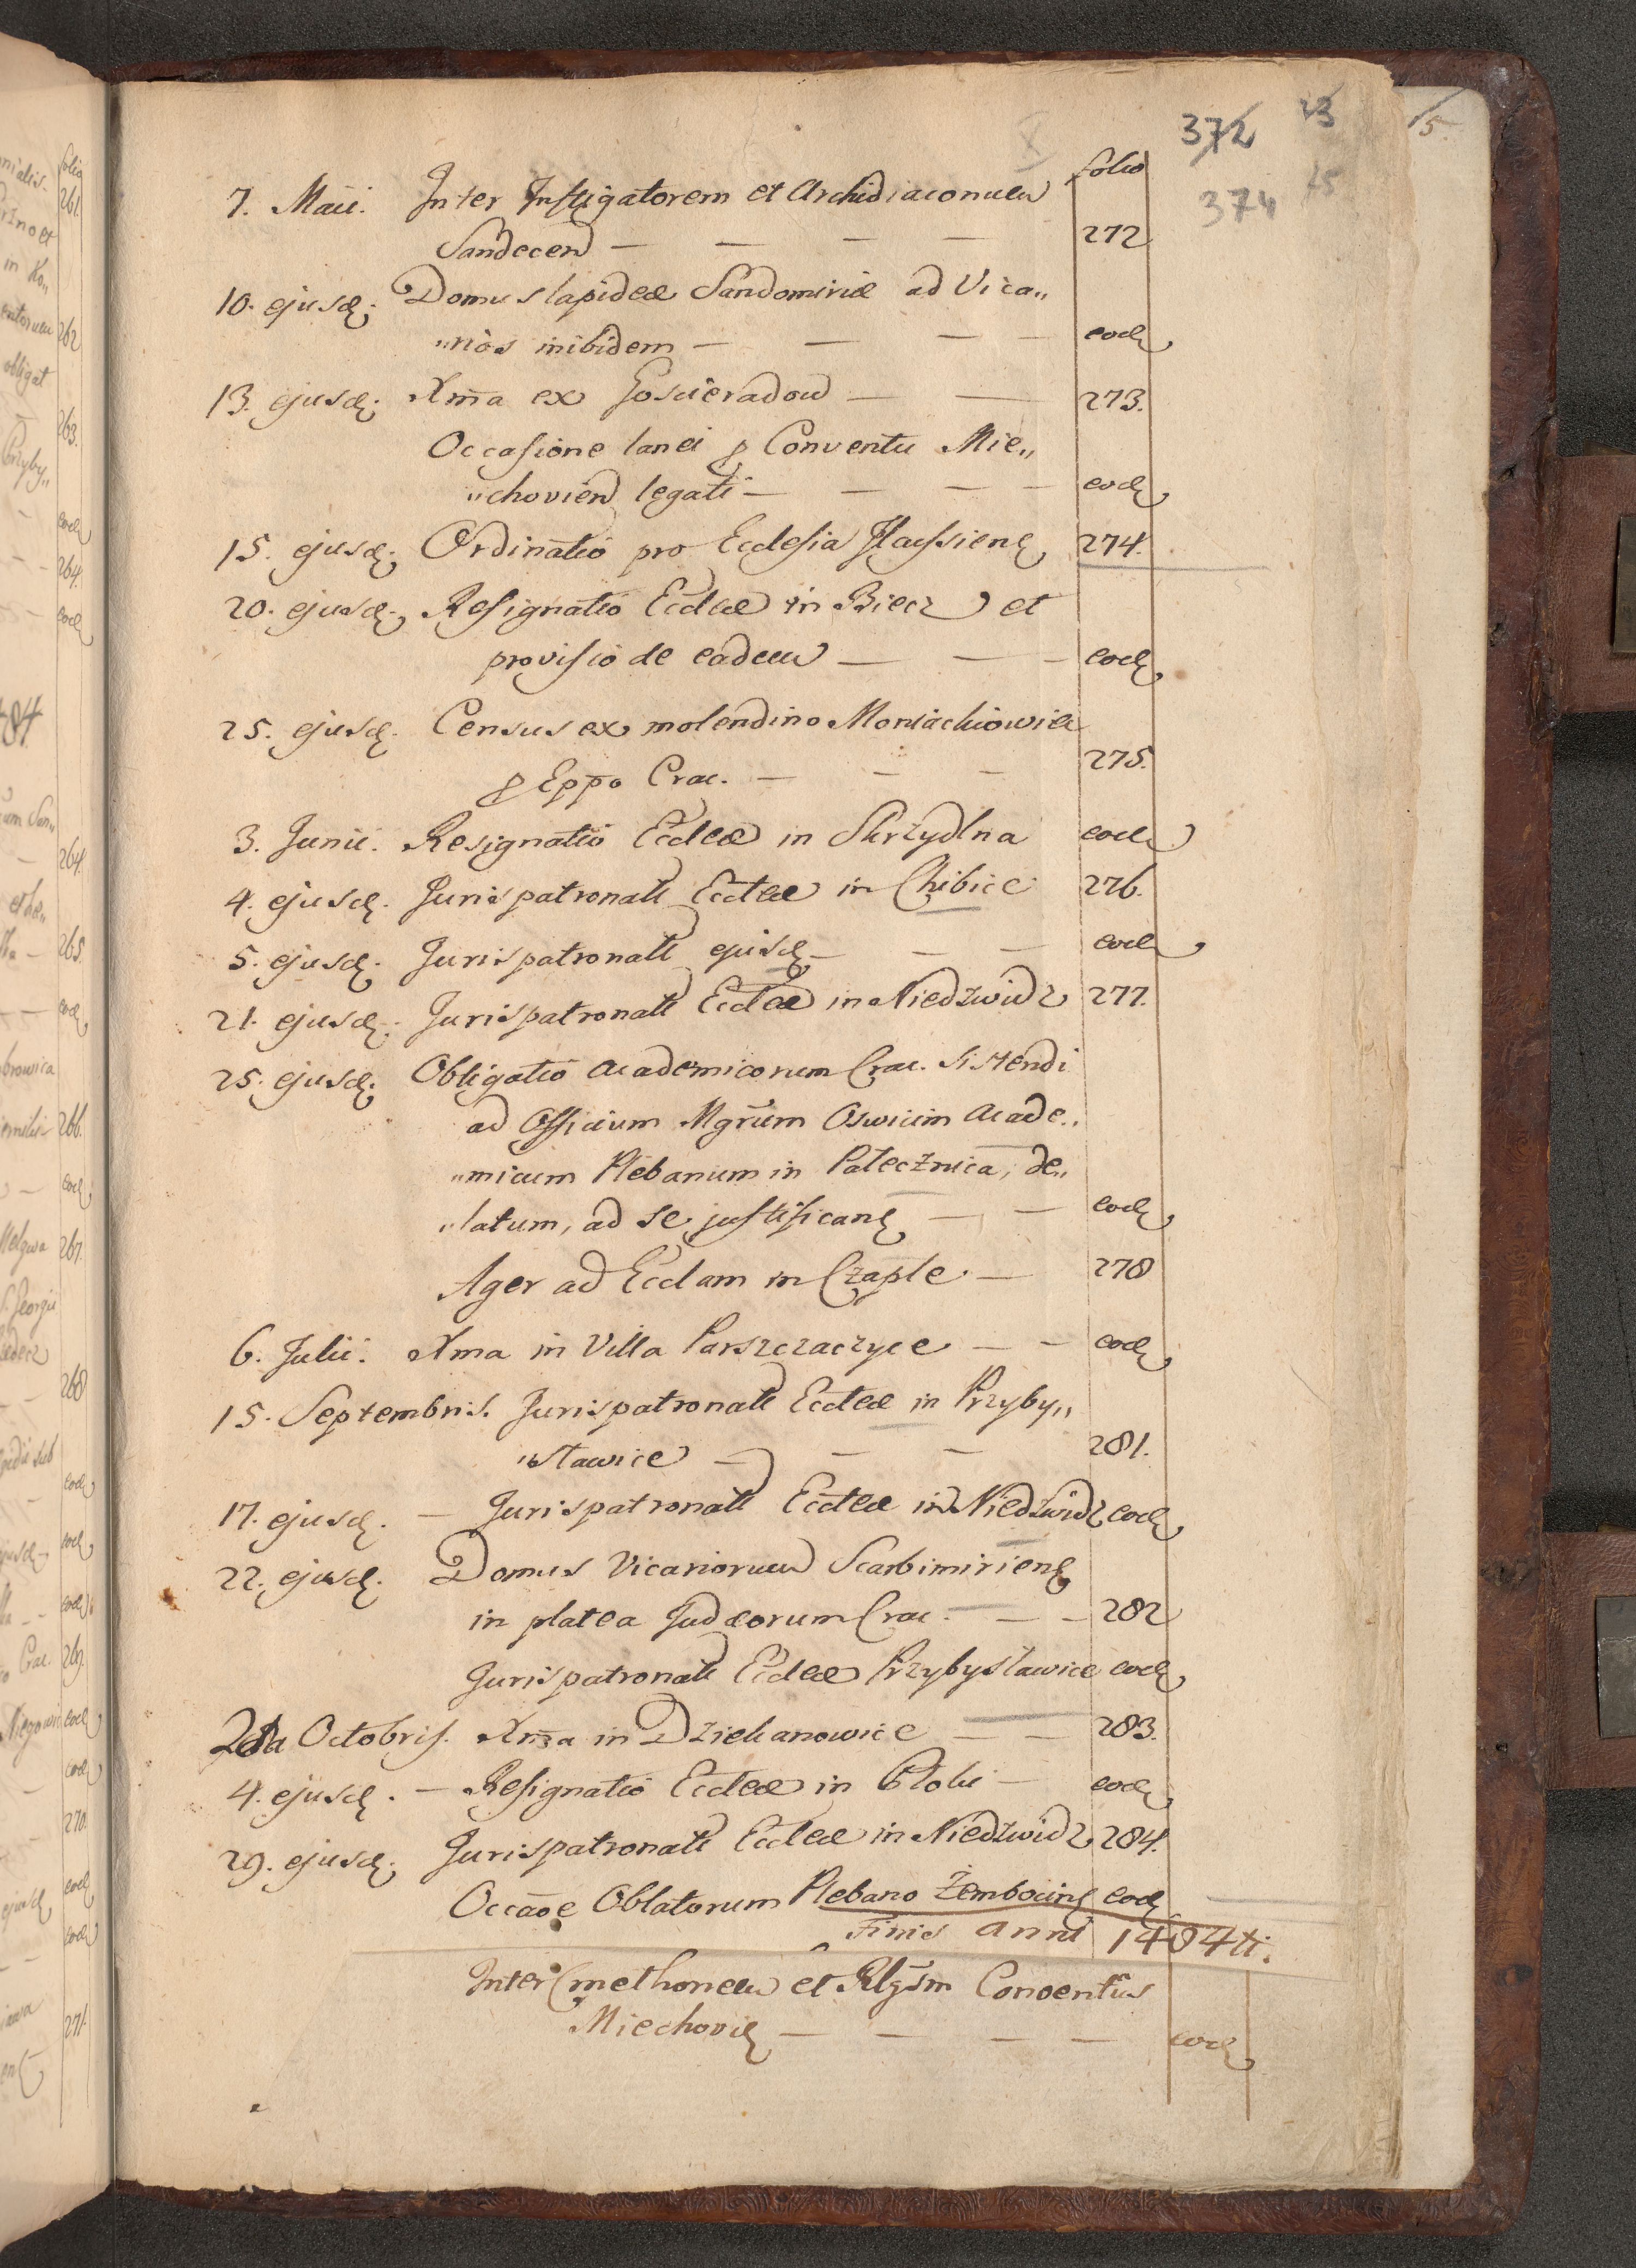 372 23
374 25
5.
folio
7. Maii. Inter Instigatorem et Archidiaconum
Sandecen — — — — 272
10. ejusd. Domus lapideæ Sandomiriæ ad Vica„
„rios inibidem — — — — eod
13. ejusd. Xma ex Goscieradow — — 273.
Occasione lanei p Conventu Mie„
„chovien legati — — — — eod
15. ejusd. Ordinatio pro Ecclesia Ilkussien 274.
20. ejusd. Resignatio Eccleæ in Biecz et
provisio de eadem — — — eod
25. ejusd. Census ex molendino Moniachiowice
p Eppo Crac. — — — 275.
3. Junii. Resignatio Eccleæ in Skrzydlna eod
4. ejusd. Juris patronatus Eccleæ in Chibice 276.
5. ejusd. Juris patronatus ejusd — — — eod
21. ejusd. Juris patronatus Eccleæ in Niedzwidz 277.
25. ejusd. Obligatio Academicorum Crac. sistendi
ad Officium Mgrum Oswiecim Acade„
„micum Plebanum in Palecznica, de„
„latum, ad se justifican — — eod
Ager ad Ecclam in Czaple. — 278
6. Julii. Xma in Villa Parszczaczyce — — eod
15. Septembris. Juris patronatus Eccleæ in Przyby„
„sławice — — — 281.
17. ejusd. — Juris patronatus Eccleæ in Niedzwidz eod
22. ejusd. Domus Vicariorum Scarbimirien
in platea Judæorum Crac. — — 282
Juris patronatus Eccleæ Przybysławice eod
2da Octobris. Xma in Dziekanowice — — 283.
4. ejusd. — Resignatio Eccleæ in Płoki — eod
29. ejusd. Juris patronatus Eccleæ in Niedzwidz 284.
Occaoe Oblatorum Plebano Zembocin eod
Finis anni 1484ti.
Inter Cmethonem et Rlgsm Conventus
Miechovien — — — — eod